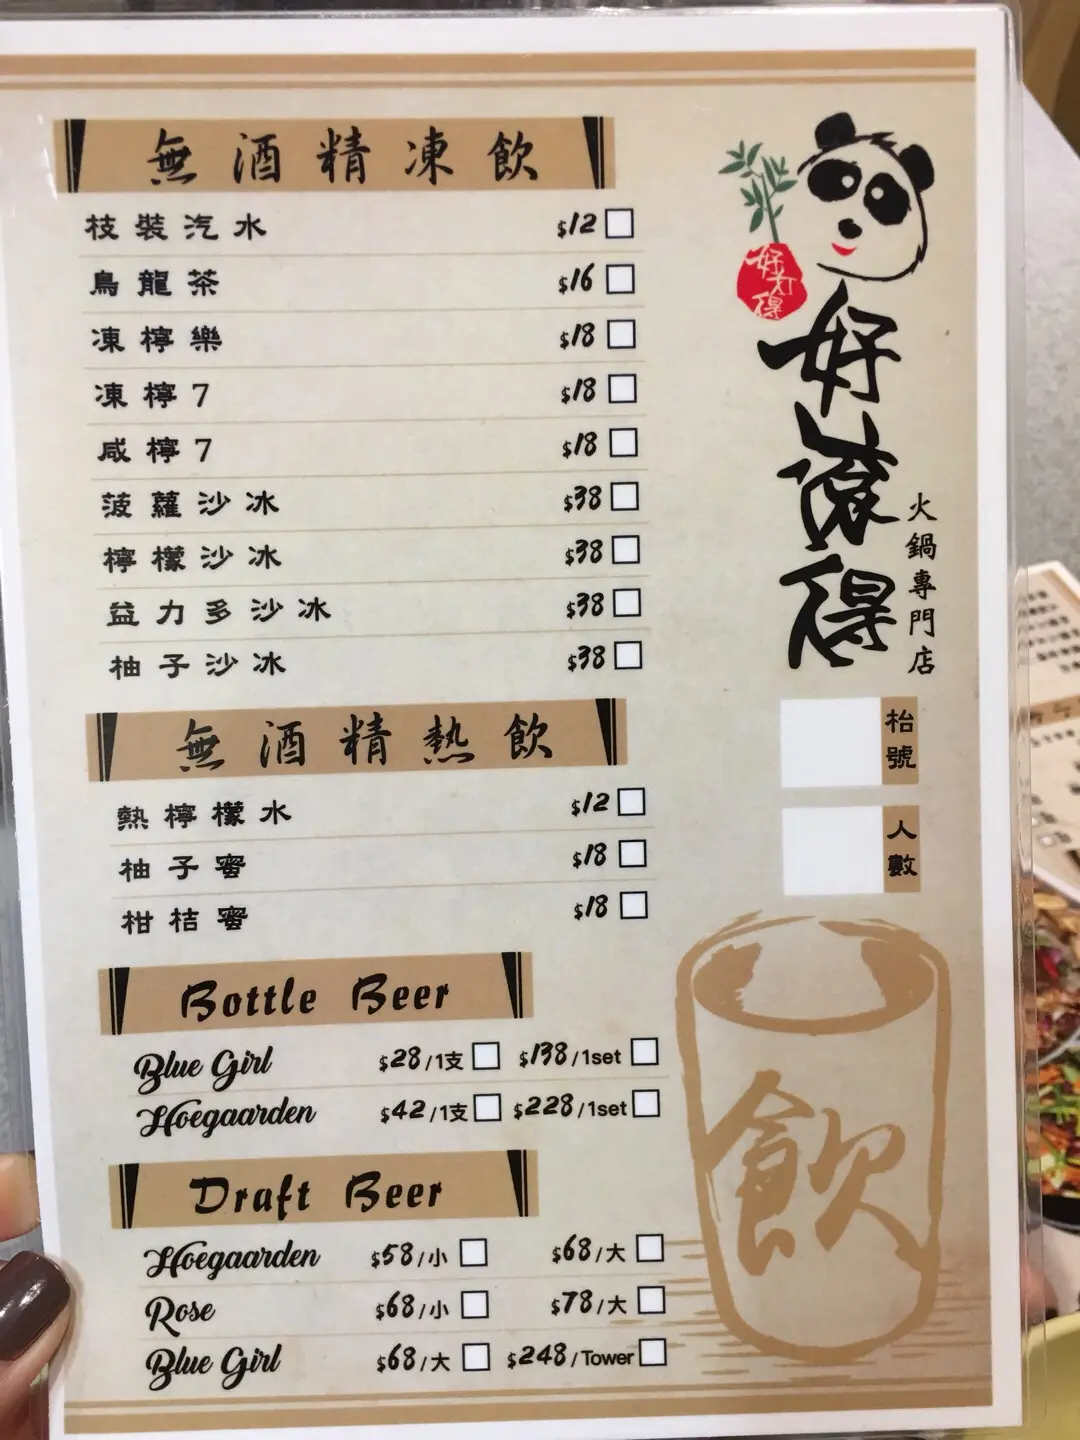 無酒精凍飲
枝裝汽水 $12
烏龍茶 $16
凍檸樂 $18
凍檸7 $18
咸檸7 $18
菠蘿沙冰 $38
檸檬沙冰 $38
益力多沙冰 $38
柚子沙冰 $38
無酒精熱飲
熱檸檬水 $12
柚子蜜 $18
柑桔蜜 $18
Bottle Beer
Blue Girl $28/1支 $138/1set
Hoegaarden $42/1支 $228/1set
Draft Beer
Hoegaarden $58/小 $68/大
Rose $68/小 $78/大
Blue Girl $68/大 $248/Tower
好滾得
火鍋專門店
枱號
人數
飲